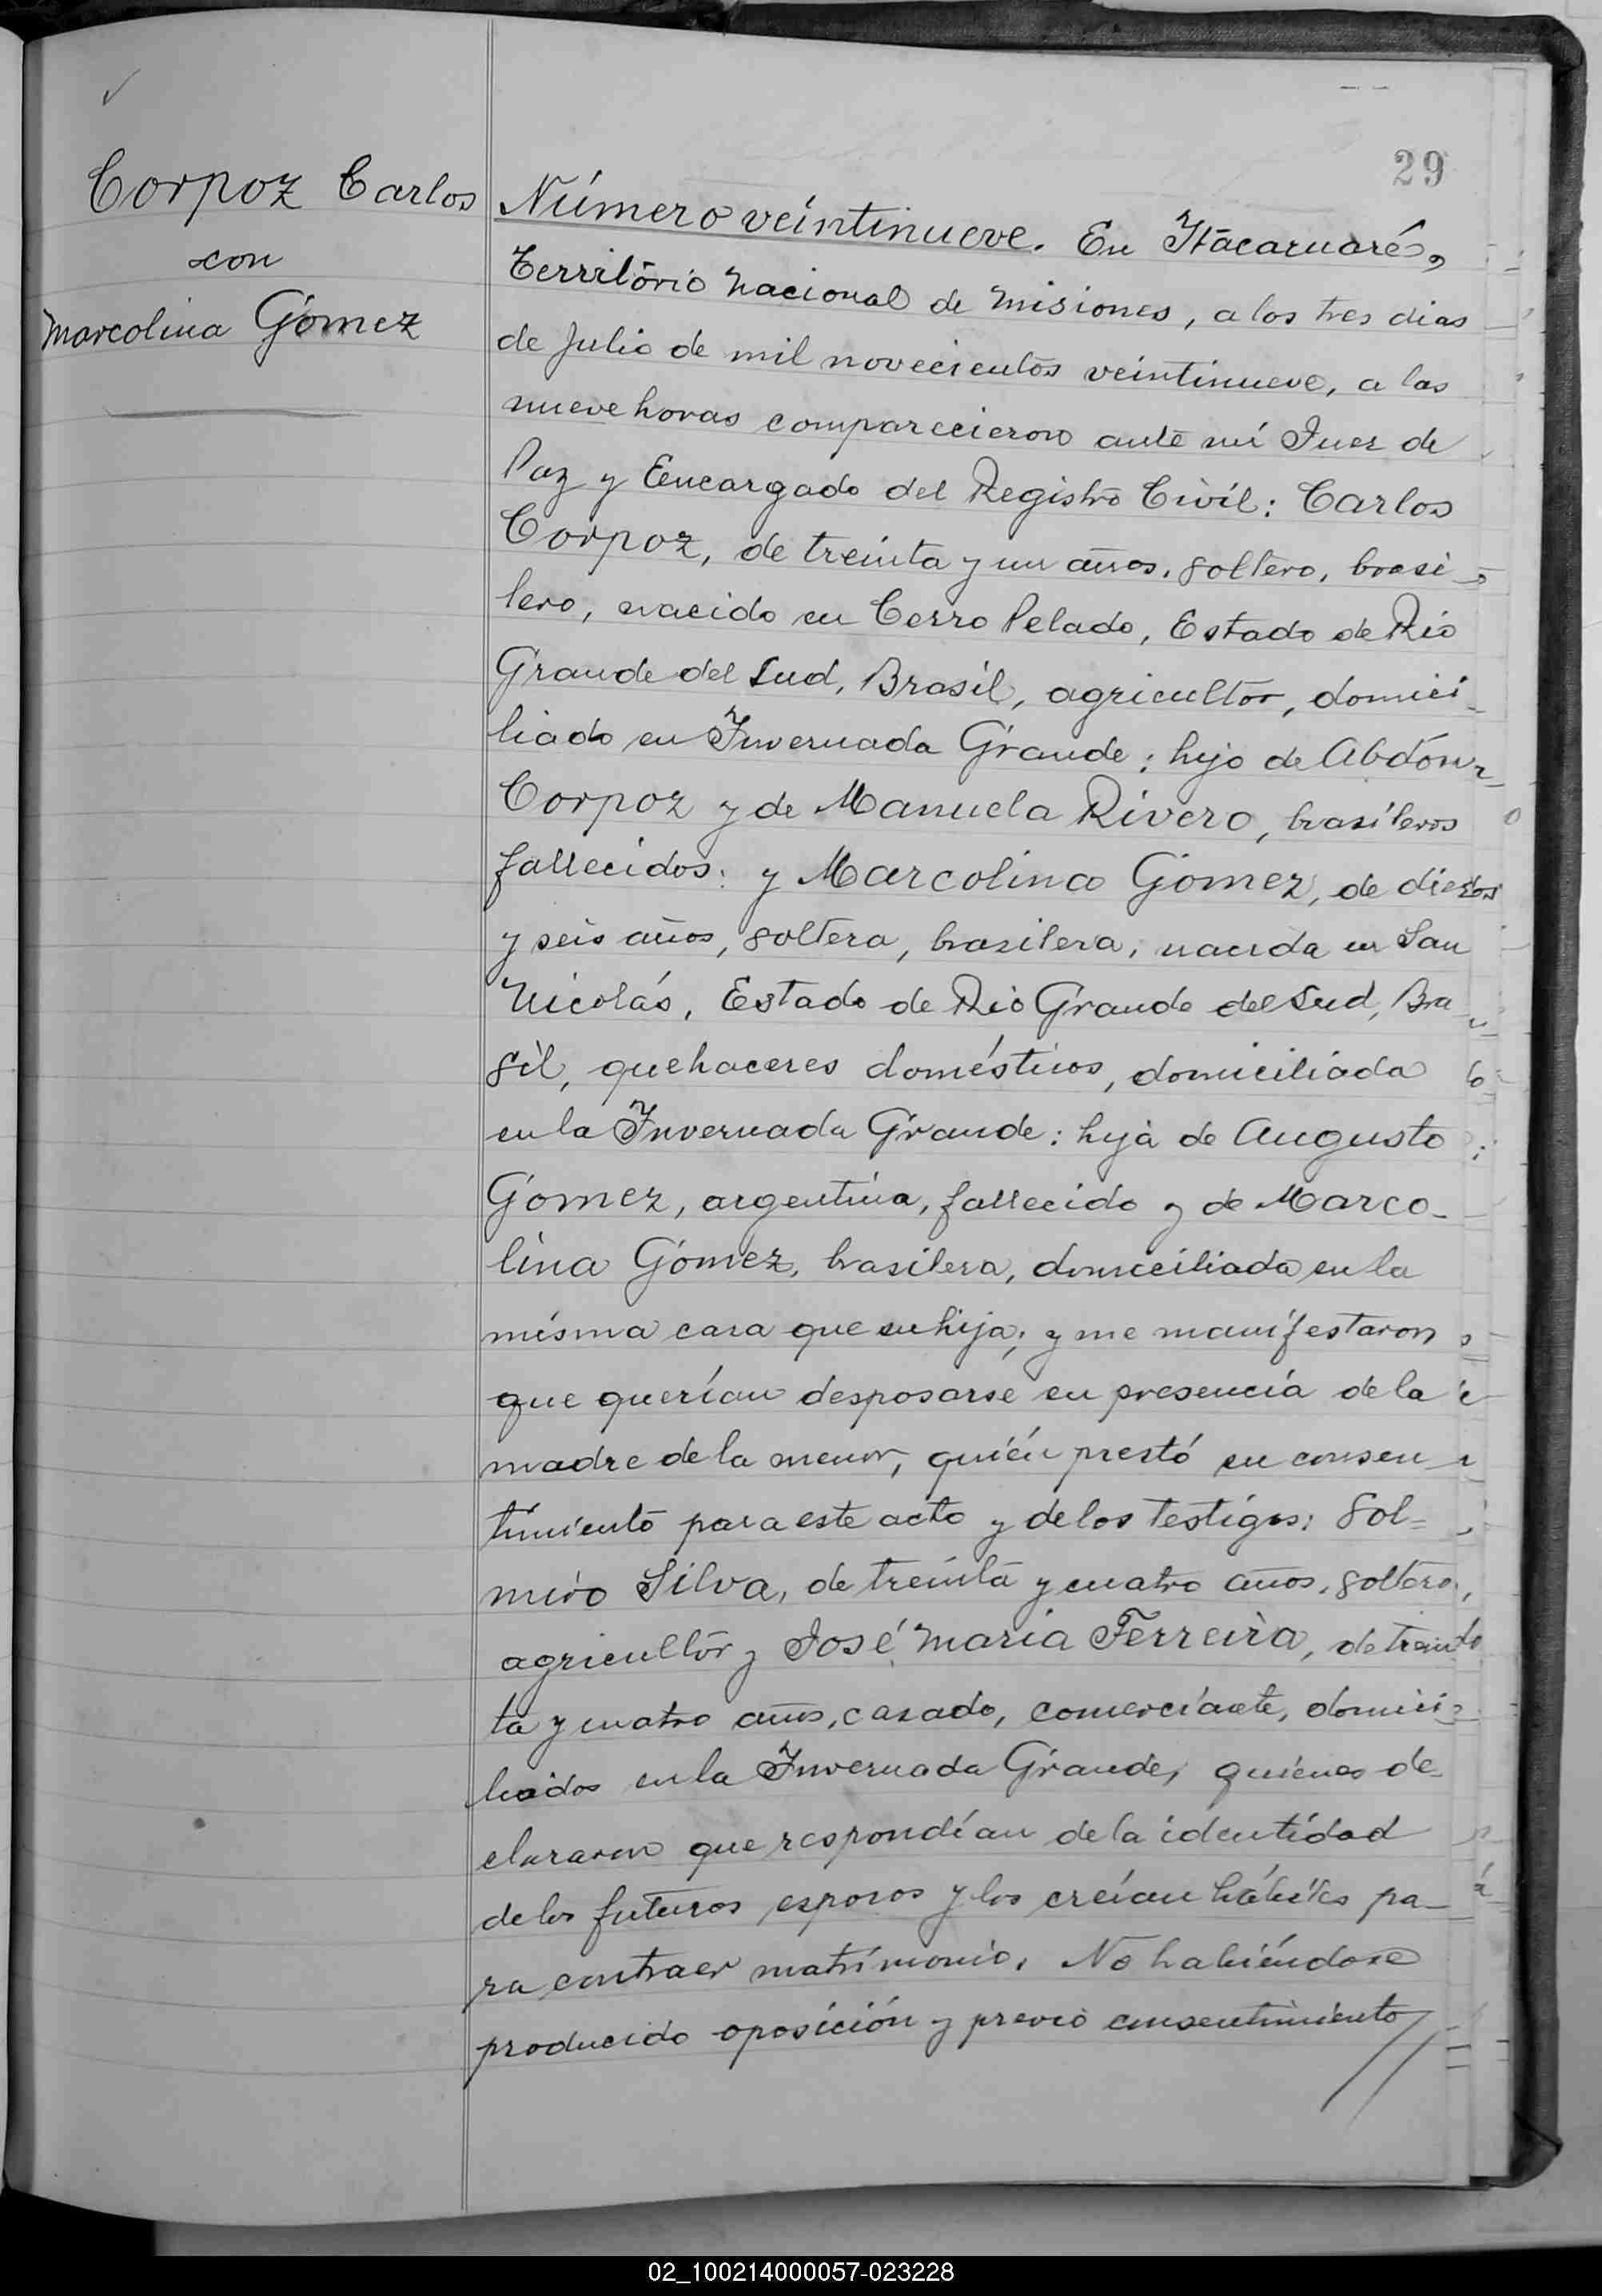 29
Corpoz Carlos
con
Marcolina Gómez
Número veintinueve. En Itacaruaré,
Território Nacional de Misiones, a los tres dias
de Julio de mil novecientos veintinueve, a las
nueve horas comparecieron ante mí Juez de
Paz y Encargado del Registro Civil: Carlos
Corpoz, de treinta y un años, soltero, brasi-
lero, nacido en Cerro Pelado, Estado de Rio
Grande del Sud, Brasil, agricultor, domici-
liado en Invernada Grande; hijo de Abdón
Corpoz y de Manuela Rivero, brasileros
fallecidos: y Marcolina Gómez, de diez
y seis años, soltera, brasilera, nacida en San
Nicolás, Estado de Rio Grande del Sud, Bra
sil, quehaceres domésticos, domiciliada
en la Invernada Grande: hija de Augusto
Gómez, argentina, fallecido y de Marco-
lina Gómez, brasilera, domiciliada en la
misma casa que su hija; y me manifestaron
que querían desposarse en presencia de la
madre de la menor, quién prestó su consen
timiento para este acto y de los testigos: Sol=
miro Silva, de treinta y cuatro años, soltero,
agricultor y José María Ferreira, de trein
ta y cuatro años, casado, comerciante, domici-
liados en la Invernada Grande, quienes de-
clararon que respondían de la identidad
de los futuros esposos y los creían hábiles pa-
ra contraer matrimonio. No habiéndose
producido oposición y previo consentimiento//
02_100214000057-023228